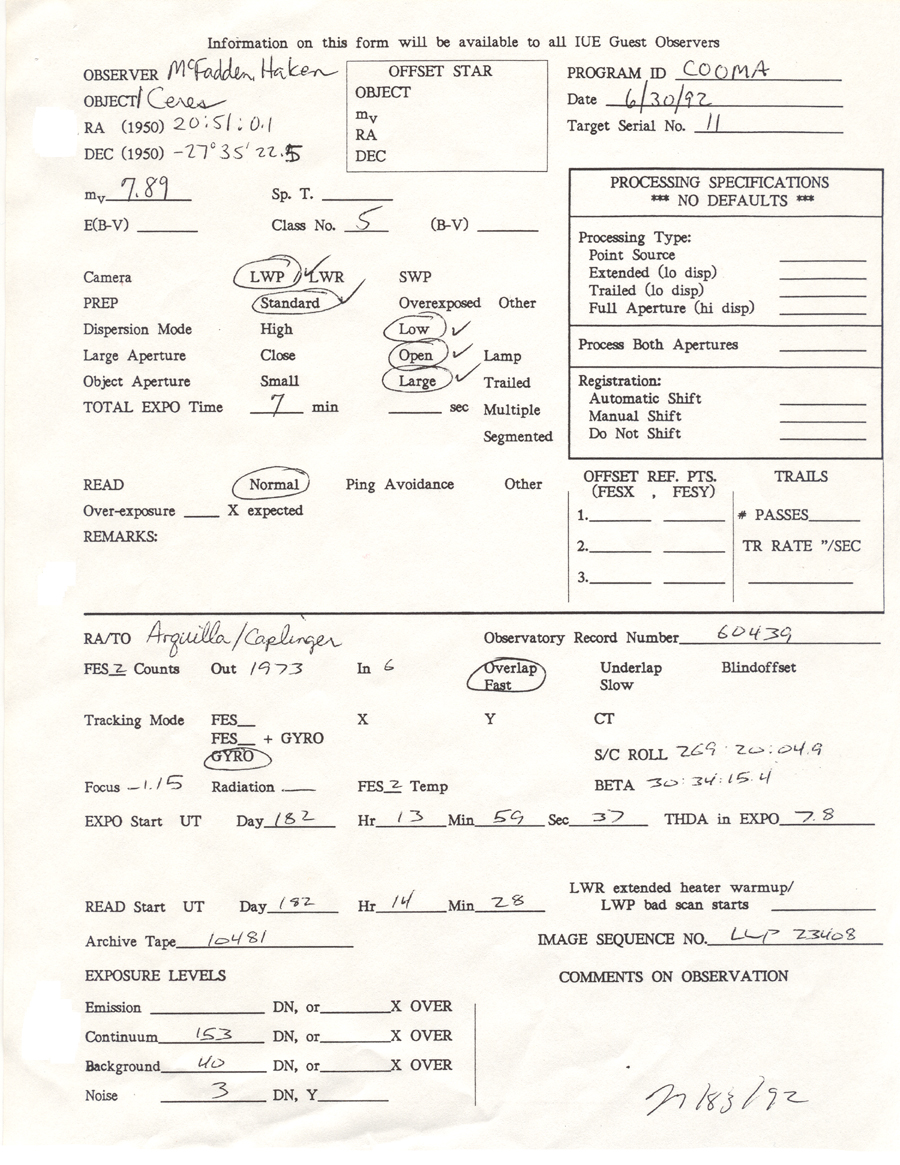 Information on this form will be available to all IUE Guest Observers
OBSERVER McFadden, Haken
OBJECT 1 Ceres
RA (1950) 20:51:0.1
DEC (1950) -27° 35' 22.5
OFFSET STAR
OBJECT
mv
RA
DEC
PROGRAM ID COOMA
Date 6/30/92
Target Serial No. 11
mv 7.89 Sp. T.
E(B-V) Class No. 5 (B-V)
PROCESSING SPECIFICATIONS
*** NO DEFAULTS ***
Processing Type:
Point Source
Extended (lo disp)
Trailed (lo disp)
Full Aperture (hi disp)
Process Both Apertures
Registration:
Automatic Shift
Manual Shift
Do Not Shift
Camera LWP LWR SWP
PREP Standard Overexposed Other
Dispersion Mode High Low
Large Aperture Close Open Lamp
Object Aperture Small Large Trailed
TOTAL EXPO Time 7 min sec Multiple
Segmented
READ Normal Ping Avoidance Other
Over-exposure X expected
REMARKS:
OFFSET REF. PTS.
(FESX , FESY)
1.
2.
3.
TRAILS
# PASSES
TR RATE "/SEC
RA/TO Arquilla/Caplinger Observatory Record Number 60439
FES 2 Counts Out 1973 In 6 Overlap Underlap Blindoffset
Fast Slow
Tracking Mode FES X Y CT
FES + GYRO
GYRO S/C ROLL 269:20:04.9
Focus -1.15 Radiation FES 2 Temp BETA 30:34:15.4
EXPO Start UT Day 182 Hr 13 Min 59 Sec 37 THDA in EXPO 7.8
LWR extended heater warmup/
READ Start UT Day 182 Hr 14 Min 28 LWP bad scan starts
Archive Tape 10481 IMAGE SEQUENCE NO. LWP 23408
EXPOSURE LEVELS COMMENTS ON OBSERVATION
Emission DN, or X OVER
Continuum 153 DN, or X OVER
Background 40 DN, or X OVER
Noise 3 DN, Y
/83/92